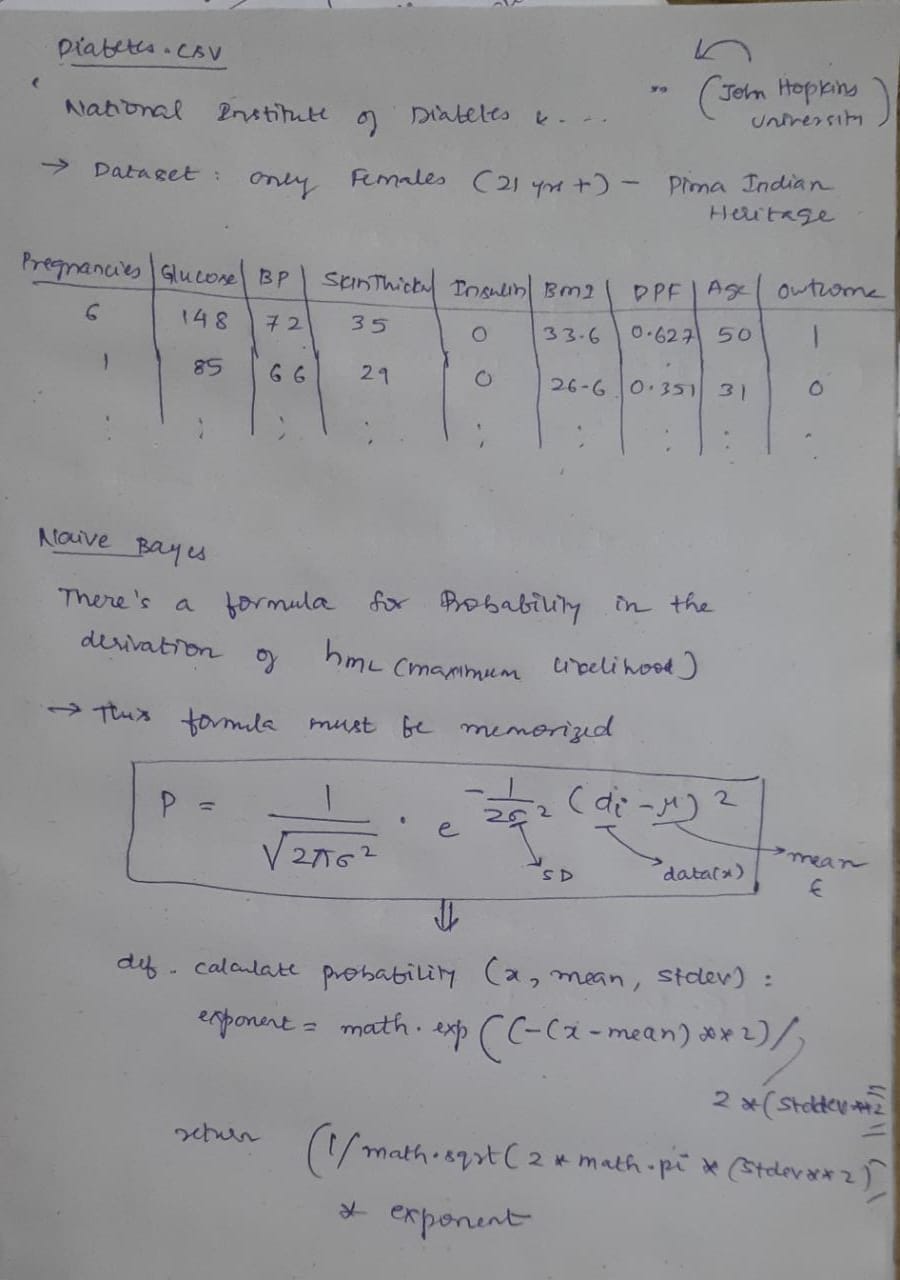 Diabetes.CSV
National Institute of Diabetes & .... " (John Hopkins University)
→ Dataset : only Females (21 yrs +) – Pima Indian
Heritage
Pregnancies | Glucose | BP | SkinThickn | Insulin | BMI | DPF | Age | Outcome
6 | 148 | 72 | 35 | 0 | 33.6 | 0.627 | 50 | 1
1 | 85 | 66 | 29 | 0 | 26-6 | 0.351 | 31 | 0
Naive Bayes
There's a formula for Probability in the
derivation of hML (maximum likelihood)
→ This formula must be memorized
P = 1 / √2πσ² . e ^ -1/2σ² (di - μ)²
SD data(x) mean
⇓
def. calculate probability (x, mean, stdev) :
exponent = math.exp((-(x-mean)**2)/
2*(stddev**2
return (1/math.sqrt(2*math.pi*(stdev**2)
* exponent